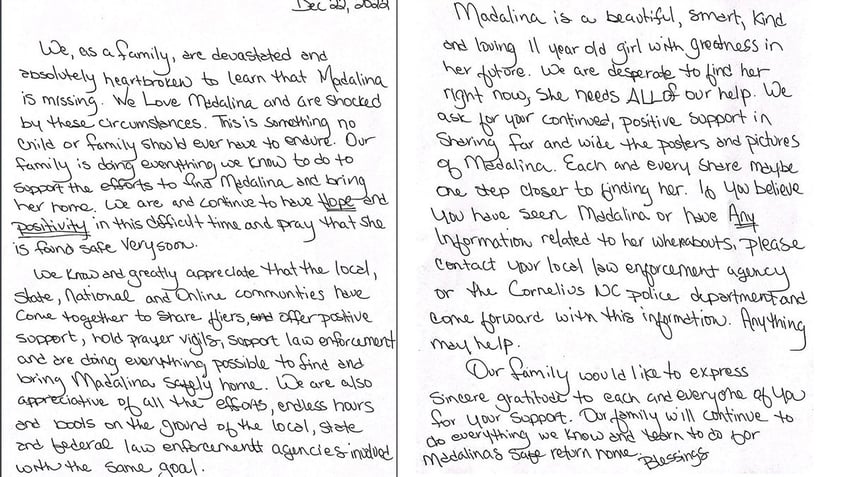 Dec 22, 2022
We, as a family, are devastated and
absolutely heartbroken to learn that Madalina
is missing. We Love Madalina and are shocked
by these circumstances. This is something no
child or family should ever have to endure. Our
family is doing everything we know to do to
support the efforts to find Madalina and bring
her home. We are and continue to have Hope and
positivity in this difficult time and pray that she
is found safe very soon.
We know and greatly appreciate that the local,
state, National and Online communities have
come together to share fliers, and offer positive
support, hold prayer vigils, support law enforcement
and are doing everything possible to find and
bring Madalina safely home. We are also
appreciative of all the efforts, endless hours
and boots on the ground of the local, state
and federal law enforcement agencies involved
with the same goal.
Madalina is a beautiful, smart, kind
and loving 11 year old girl with greatness in
her future. We are desperate to find her
right now, She needs ALL of our help. We
ask for your continued, positive support in
sharing far and wide the posters and pictures
of Madalina. Each and every share maybe
one step closer to finding her. If you believe
you have seen Madalina or have Any
Information related to her whereabouts, please
contact your local law enforcement agency
or the Cornelius NC police department and
come forward with this information. Anything
may help.
Our family would like to express
sincere gratitude to each and everyone of you
for your support. Our family will continue to
do everything we know and learn to do for
Madalinas safe return home. Blessings